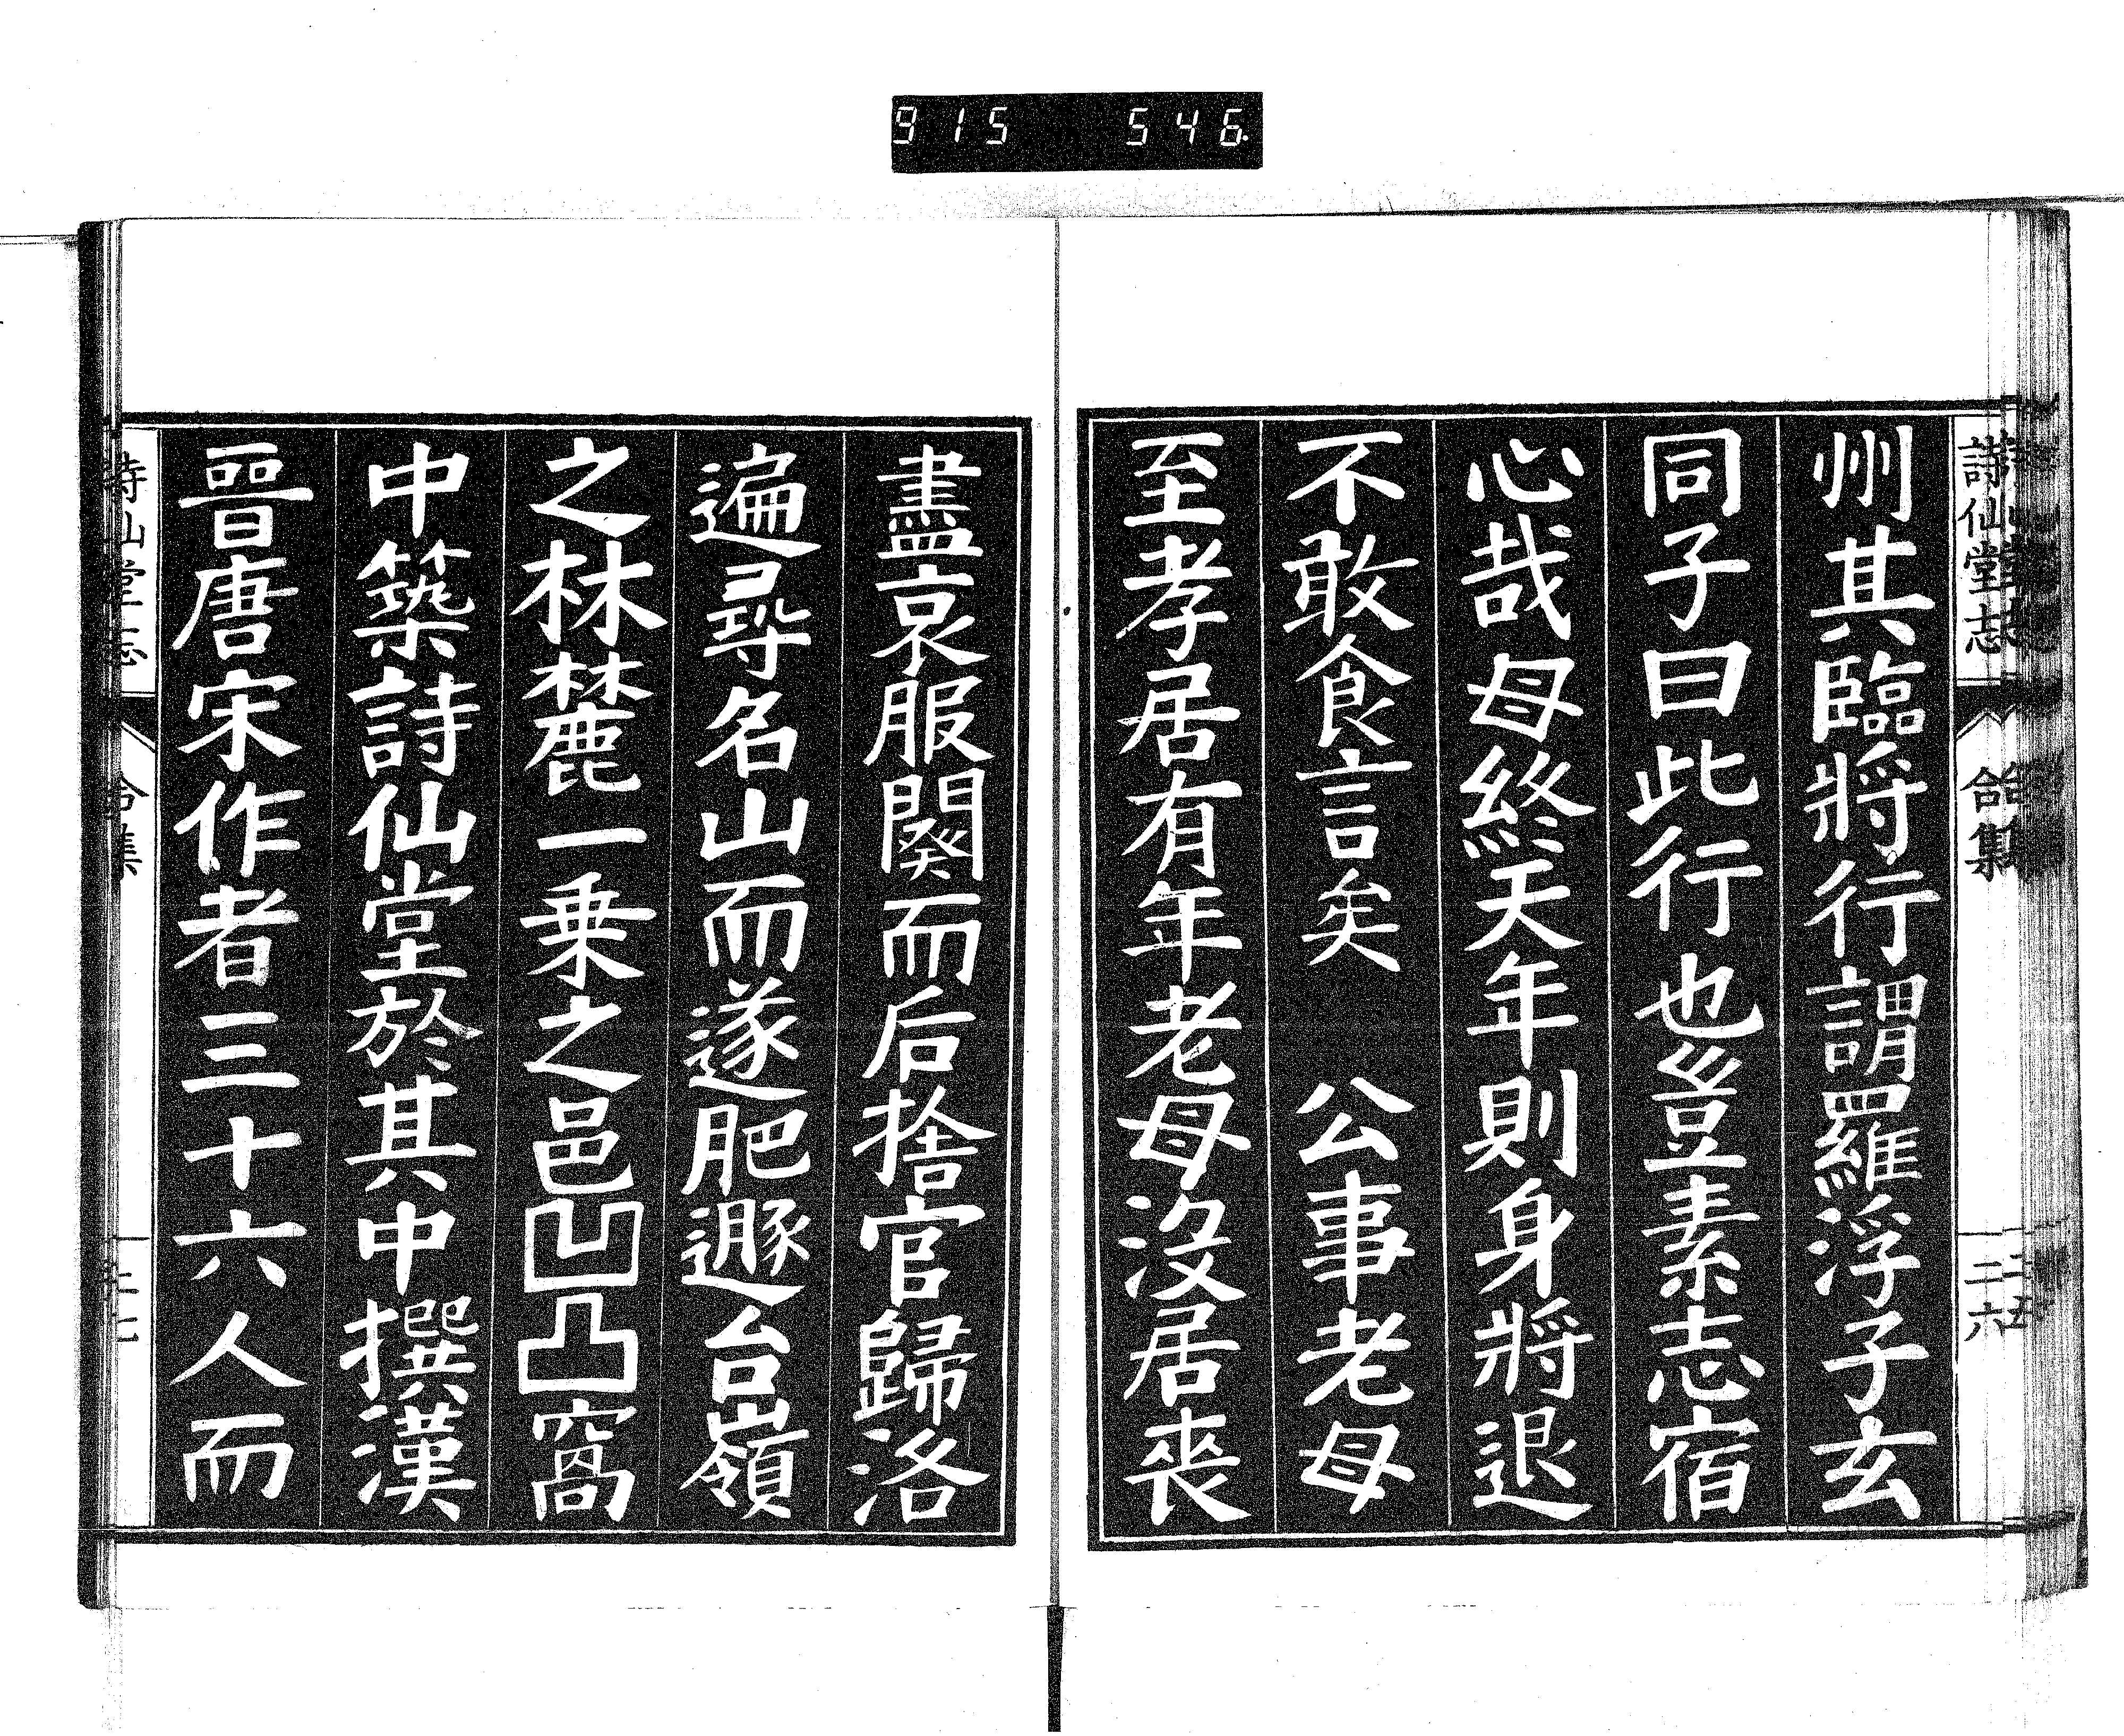 915 546
詩仙堂志 合集 二十六
州其臨將行謂羅浮子玄
同子曰此行也豈素志宿
心哉母終天年則身將退
不敢食言矣 公事老母
至孝居有年老母沒居喪
盡哀服闋而后捨官歸洛
遍尋名山而遂肥遯台嶺
之林麓一乗之邑凹凸窩
中築詩仙堂於其中撰漢
晉唐宋作者三十六人而
詩仙堂志 合集